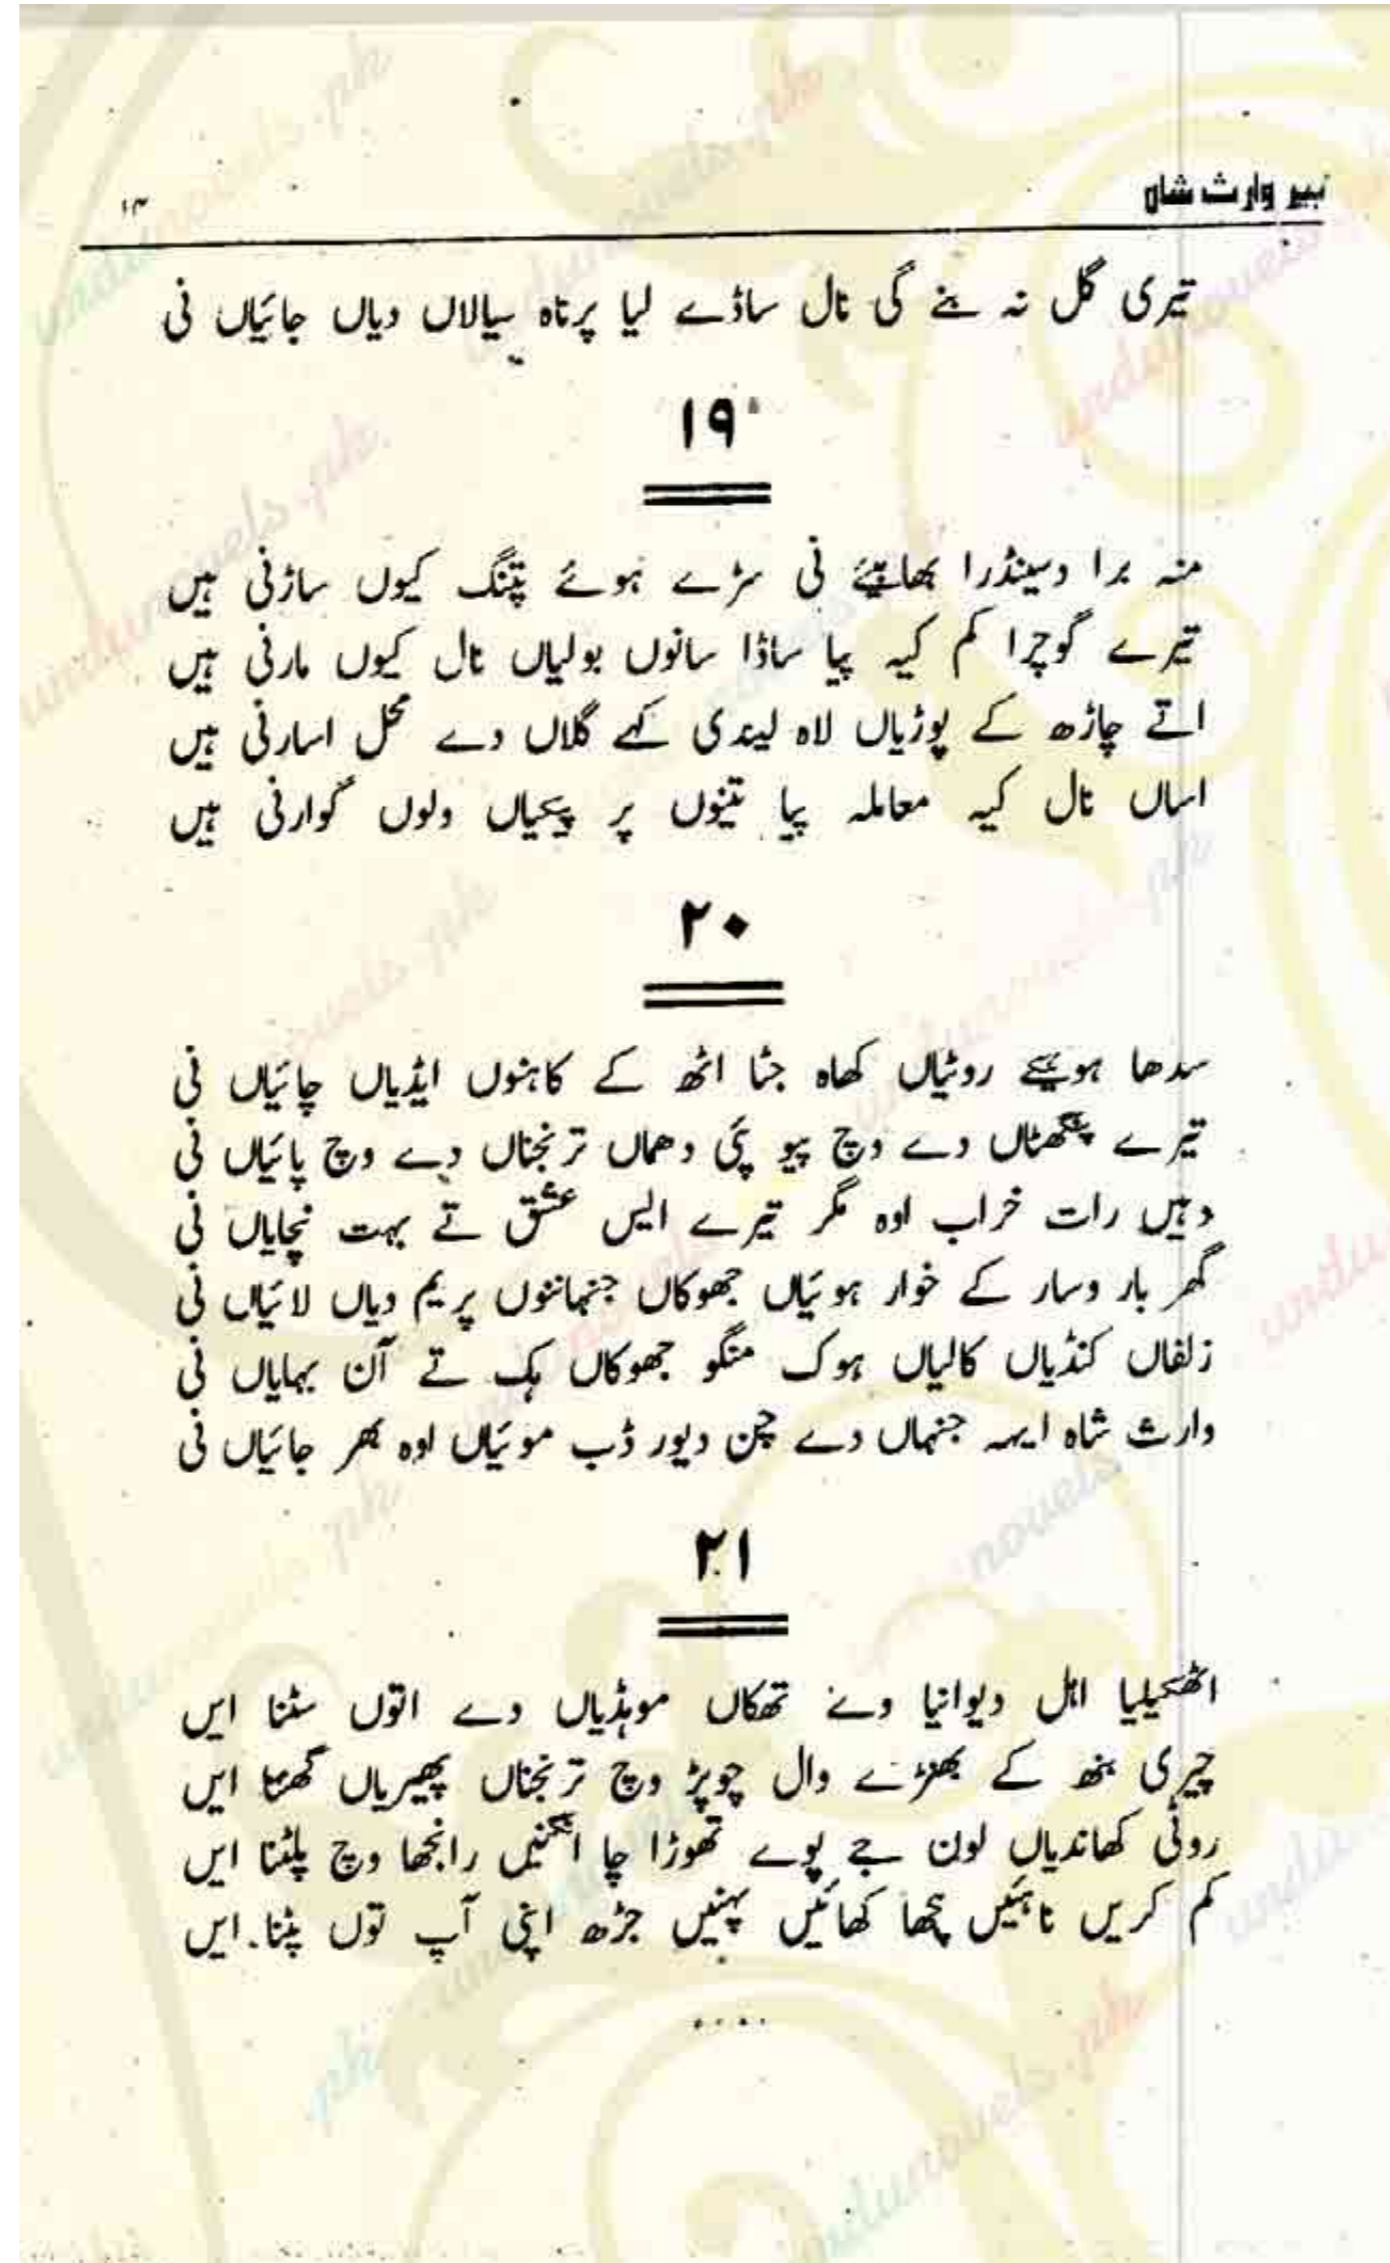 ہیر وارث شاہ ۱۳
تیری گل نہ بنے گی نال ساڈے لیا پرناہ سیالاں دیاں جائیاں نی
۱۹
منہ برا دسیندڑا بھابیئے نی سڑے ہوئے پتنگ کیوں ساڑنی ہیں
تیرے گوچرا کم کیہ پیا ساڈا سانوں بولیاں نال کیوں مارنی ہیں
اتے چاڑھ کے پوڑیاں لاہ لیندی کہے گلاں دے محل اسارنی ہیں
اساں نال کیہ معاملہ پیا تینوں پر پیکیاں ولوں گوارنی ہیں
۲۰
سدھا ہوئیکے روٹیاں کھاہ جٹا اٹھ کے کاہنوں ایڈیاں چائیاں نی
تیرے پنگھٹاں دے وچ پیو پئی دھماں ترنجناں دے وچ پائیاں نی
دہیں رات خراب اوہ مگر تیرے ایس عشق تے بہت نچایاں نی
گھر بار وسار کے خوار ہوئیاں جھوکاں جنہانوں پریم دیاں لائیاں نی
زلفاں کنڈیاں کالیاں ہوک منگو جھوکاں ہک تے آن بہایاں نی
وارث شاہ ایہہ جنہاں دے چن دیور ڈب موئیاں اوہ بھر جائیاں نی
۲۱
اٹھکیلیا اہل دیوانیا وے تھکاں موہڈیاں دے اتوں سٹنا ایں
چیری بنھ کے بھنڑے وال چوپڑ وچ ترنجناں پھیریاں گھتنا ایں
روٹی کھاندیاں لون جے پوے تھوڑا چا انگنیں رانجھا وچ پلٹنا ایں
کم کریں ناہئیں پچھا کھائیں پہنیں جڑھ اپنی آپ توں پٹنا ایں